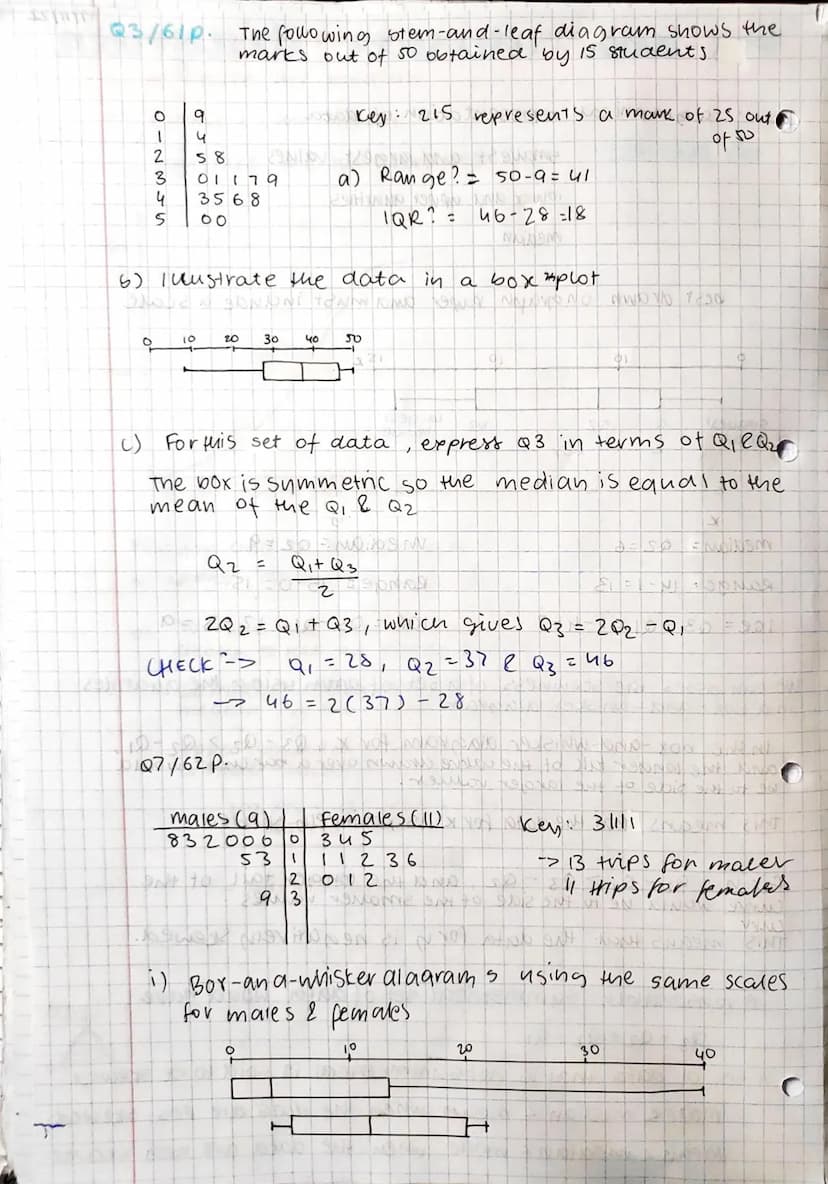 Q3/61p. The following stem-and-leaf diagram shows the
marks out of 50 obtained by 15 students
0 | 9
1 | 4
2 | 5 8
3 | 0 1 1 7 9
4 | 3 5 6 8
5 | 0 0
Key: 2|5 represents a mark of 25 out
of 50
a) Range? = 50-9 = 41
IQR? = 46-28 =18
b) Illustrate the data in a box plot
0 10 20 30 40 50
c) For this set of data, express Q3 in terms of Q1 & Q2
The box is symmetric so the median is equal to the
mean of the Q1 & Q2
Q2 = Q1+Q3
2
2Q2 = Q1 + Q3, which gives Q3 = 2Q2 - Q1
CHECK -> Q1 = 28, Q2 = 37 & Q3 = 46
-> 46 = 2(37) - 28
Q7/62p.
males (9) | | females (11)
8 3 2 0 0 0 | 0 | 3 4 5
5 3 | 1 | 1 1 2 3 6
| 2 | 0 1 2
9 | 3 |
Key: 3|1|1
-> 13 trips for males
11 trips for females
i) Box-and-whisker diagrams using the same scales
for males & females
0 10 20 30 40